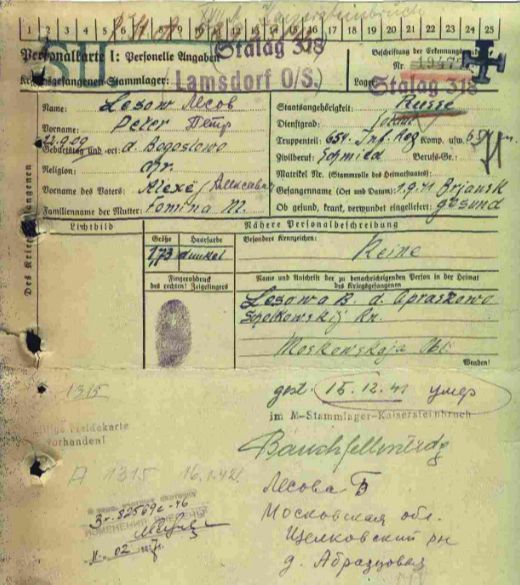 1 2 3 4 5 6 7 8 9 10 11 12 13 14 15 16 17 18 19 20 21 22 23 24 25
Personalkarte I: Personelle Angaben
Stalag 318
Beschriftung der Erkennungsmarke
Nr. 19477
Kriegsgefangenen-Stammlager:
Lamsdorf O/S.
Lager:
Stalag 318
Des Kriegsgefangenen
Name: Lesow Лесов
Vorname: Peter Петр
Geburtstag und -ort: 22.9.09 d. Bogoslowo
Religion:
Vorname des Vaters: Alexe
Familienname der Mutter: Fomina M.
Staatsangehörigkeit: Russe
Dienstgrad: Soldat
Truppenteil: 654. Inf. Reg Komp. usw.:
Zivilberuf: Schmied Berufs-Gr.:
Matrikel Nr. (Stammrolle des Heimatstaates):
Gefangennahme (Ort und Datum): 1.9.41 Brjansk
Ob gesund, krank, verwundet eingeliefert: gesund
Lichtbild
Nähere Personalbeschreibung
Größe
Haarfarbe
Besondere Kennzeichen:
1,73
dunkel
Keine
Fingerabdruck
des rechten! Zeigefingers
Name und Anschrift der zu benachrichtigenden Person in der Heimat
des Kriegsgefangenen
Lesowa B. d. Apraskowo
Moskowskaja Obl.
Wenden!
1315
gest. 15.12.41 умер
im M-Stammlager-Kaisersteinbruch
vorhanden!
A 1315
Лесова Б
Московская обл.
Щелковский рн
д. Абразцовая